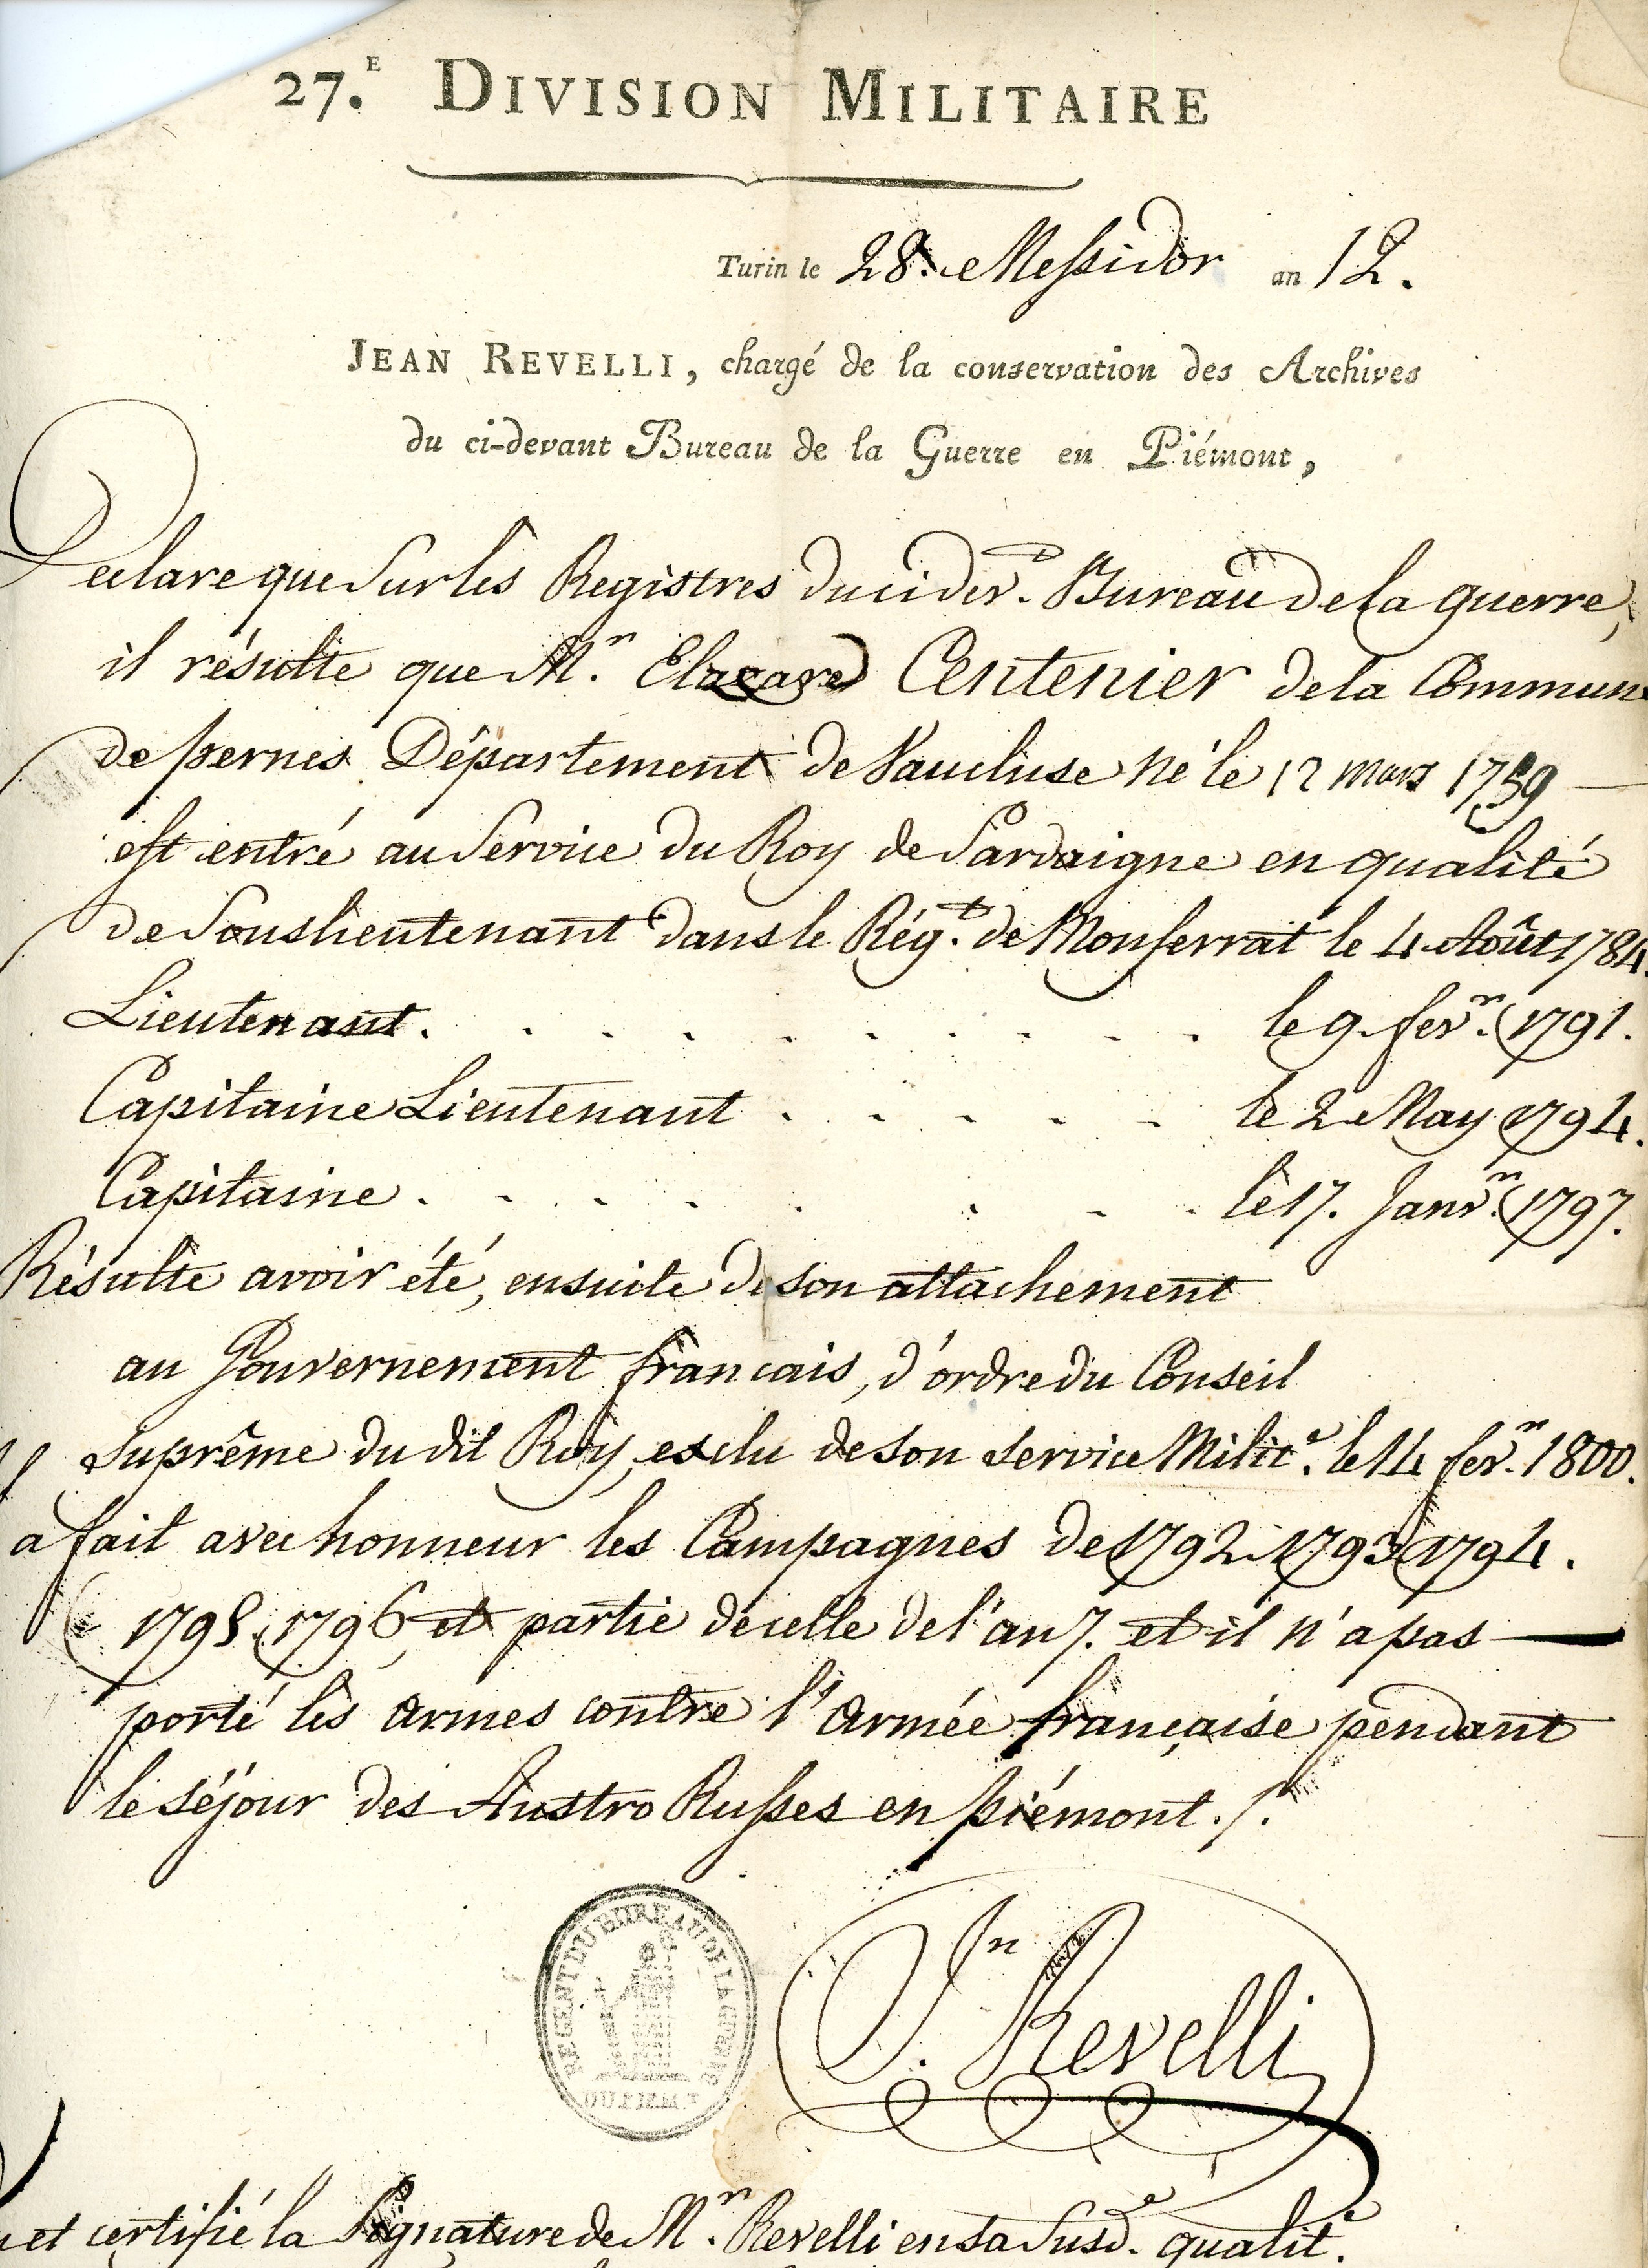 27.E DIVISION MILITAIRE
Turin le 28. Messidor an 12.
JEAN REVELLI, chargé de la conservation des Archives
du ci-devant Bureau de la Guerre en Piémont,
Declare que sur les Registres du cidev.t Bureau de la guerre,
il résulte que M.r Elzeard Centenier de la Commune
de pernes Département de Vaucluse né le 12 mars 1759
est entré au Service du Roy de Sardaigne en qualité
de Souslieutenant dans le Rég.t de Monferrat le 4 Août 1784.
Lieutenant. . . . . . . . . . le 9 fev.r 1791.
Capitaine Lieutenant . . . . . le 2 May 1794.
Capitaine . . . . . . . . le 17. Janv.r 1797.
Résulte avoir été, ensuite de son attachement
au Gouvernement français, d'ordre du Conseil
Suprême du dit Roy, exclu de son service Milit.e le 14 fev.r 1800.
a fait avec honneur les Campagnes de 1792. 1793. 1794.
1795. 1796, et partie de celle de l'an 7. et il n'a pas
porté les armes contre l'armée française pendant
le séjour des Austro Russes en piémont./.
DU BUREAU DE LA GUERRE
DU PIEM.T
J.n Revelli
et certifié la Signature de M.r Revelli en sa Susd.e qualit.é